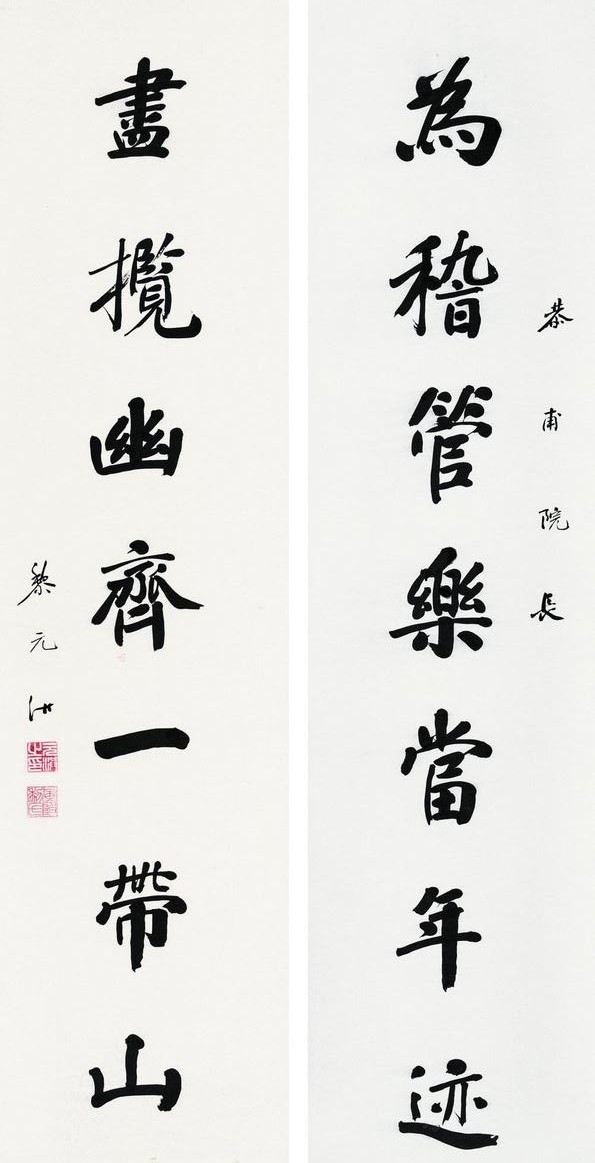 恭甫院長
為稽管樂當年迹
盡攬幽齊一帶山
黎元洪